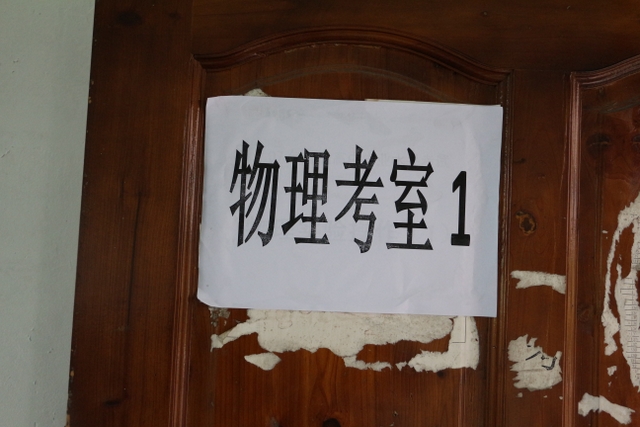 物理考室1